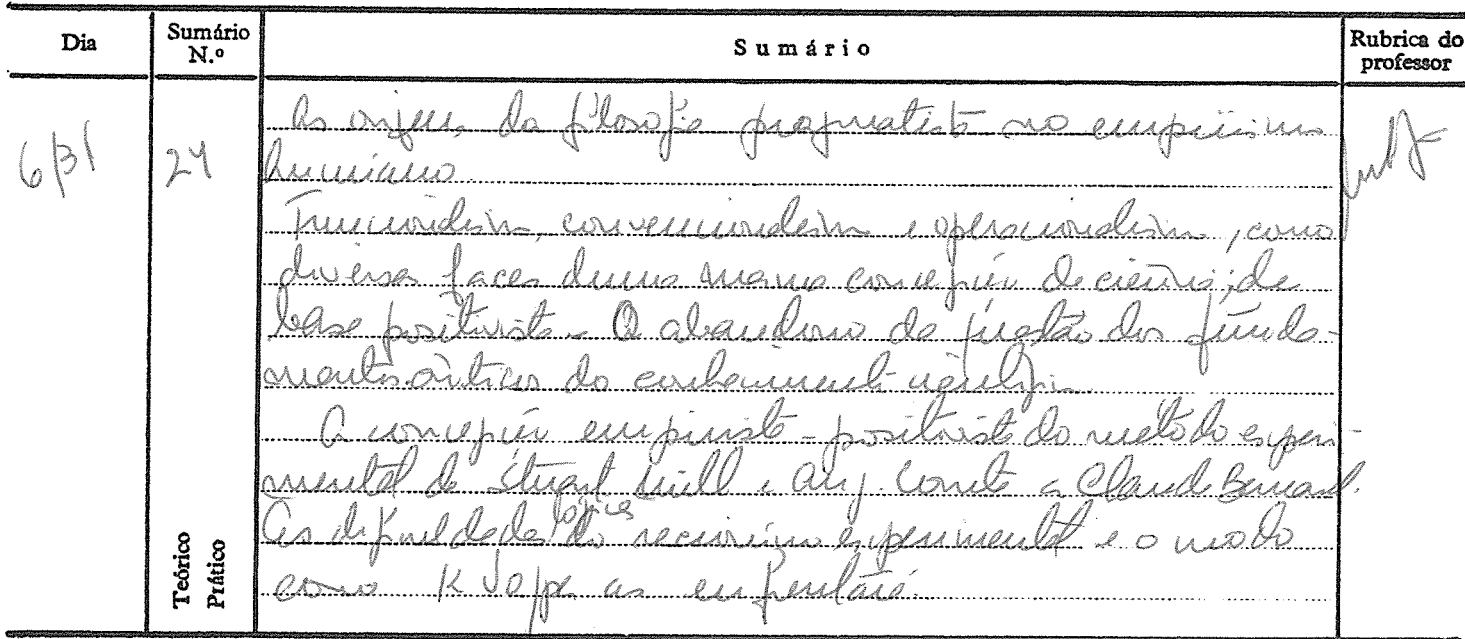 Dia
Sumário N.º
Sumário
Rubrica do professor
6/3/
24
As origens da filosofia pragmatista no empirismo
humiano.
Funcionalismo, convencionalismo e operacionalismo, como
diversas faces duma mesma concepção de ciência, de
base positivista - O abandono da questão dos funda-
mentos ônticos do conhecimento científico.
A concepção empirista-positivista do método experi-
mental de Stuart Mill e Aug. Comte a Claude Bernard.
As dificuldades lógicas do raciocínio experimental e o modo
como K Popper as enfrentará.
Teórico
Prático